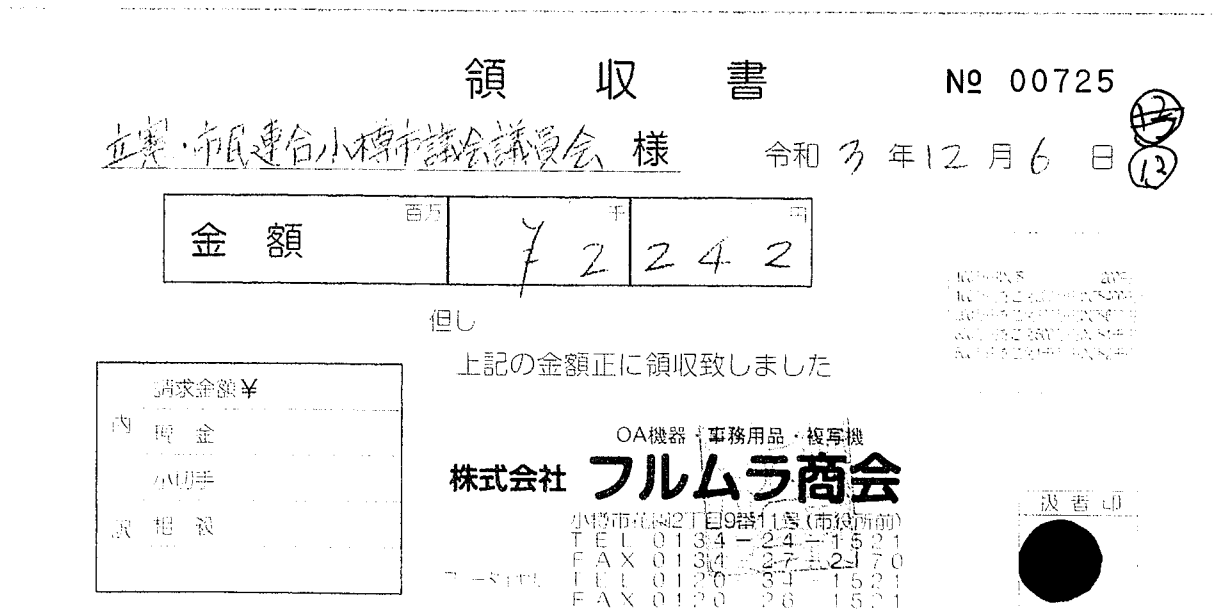 領 収 書 № 00725
立憲・市民連合小樽市議会議員会 様 令和 3 年 12 月 6 日 ⑬
金額 百万 千 円
¥2 242
但し
上記の金額正に領収致しました
請求金額¥
内 現金
小切手
訳 相殺
OA機器・事務用品・複写機
株式会社 フルムラ商会
小樽市花園2丁目9番11号(市役所前)
TEL 0134-24-1521
FAX 0134-27-2170
TEL 0120-34-1521
FAX 0120 26 1521
扱者印